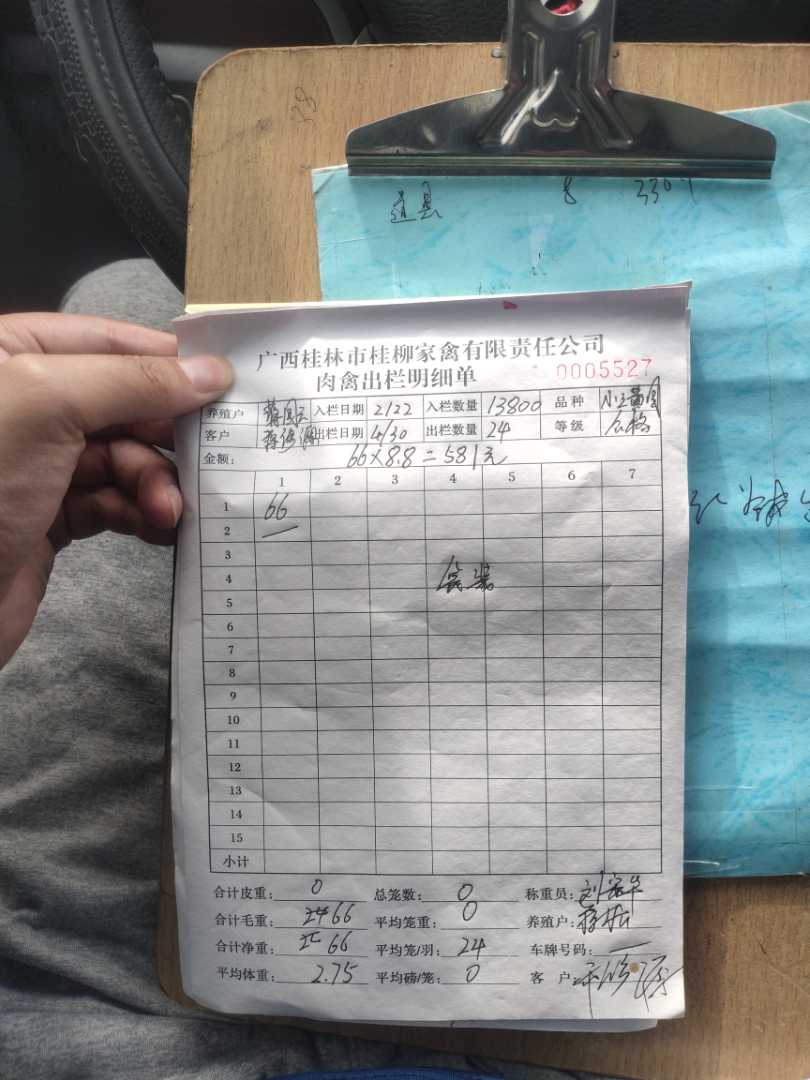 道县 8 330个
广西桂林市桂柳家禽有限责任公司
肉禽出栏明细单 0005527
养殖户 入栏日期 2/22 入栏数量 13800 品种
客户 出栏日期 4/30 出栏数量 24 等级
金额: 66×8.8=581元
1 2 3 4 5 6 7
1 66
2
3
4
5
6
7
8
9
10
11
12
13
14
15
小计
合计皮重: 0 总笼数: 0 称重员:
合计毛重: 66 平均笼重: 0 养殖户:
合计净重: 66 平均笼/羽: 24 车牌号码:
平均体重: 2.75 平均磅/笼: 0 客户: